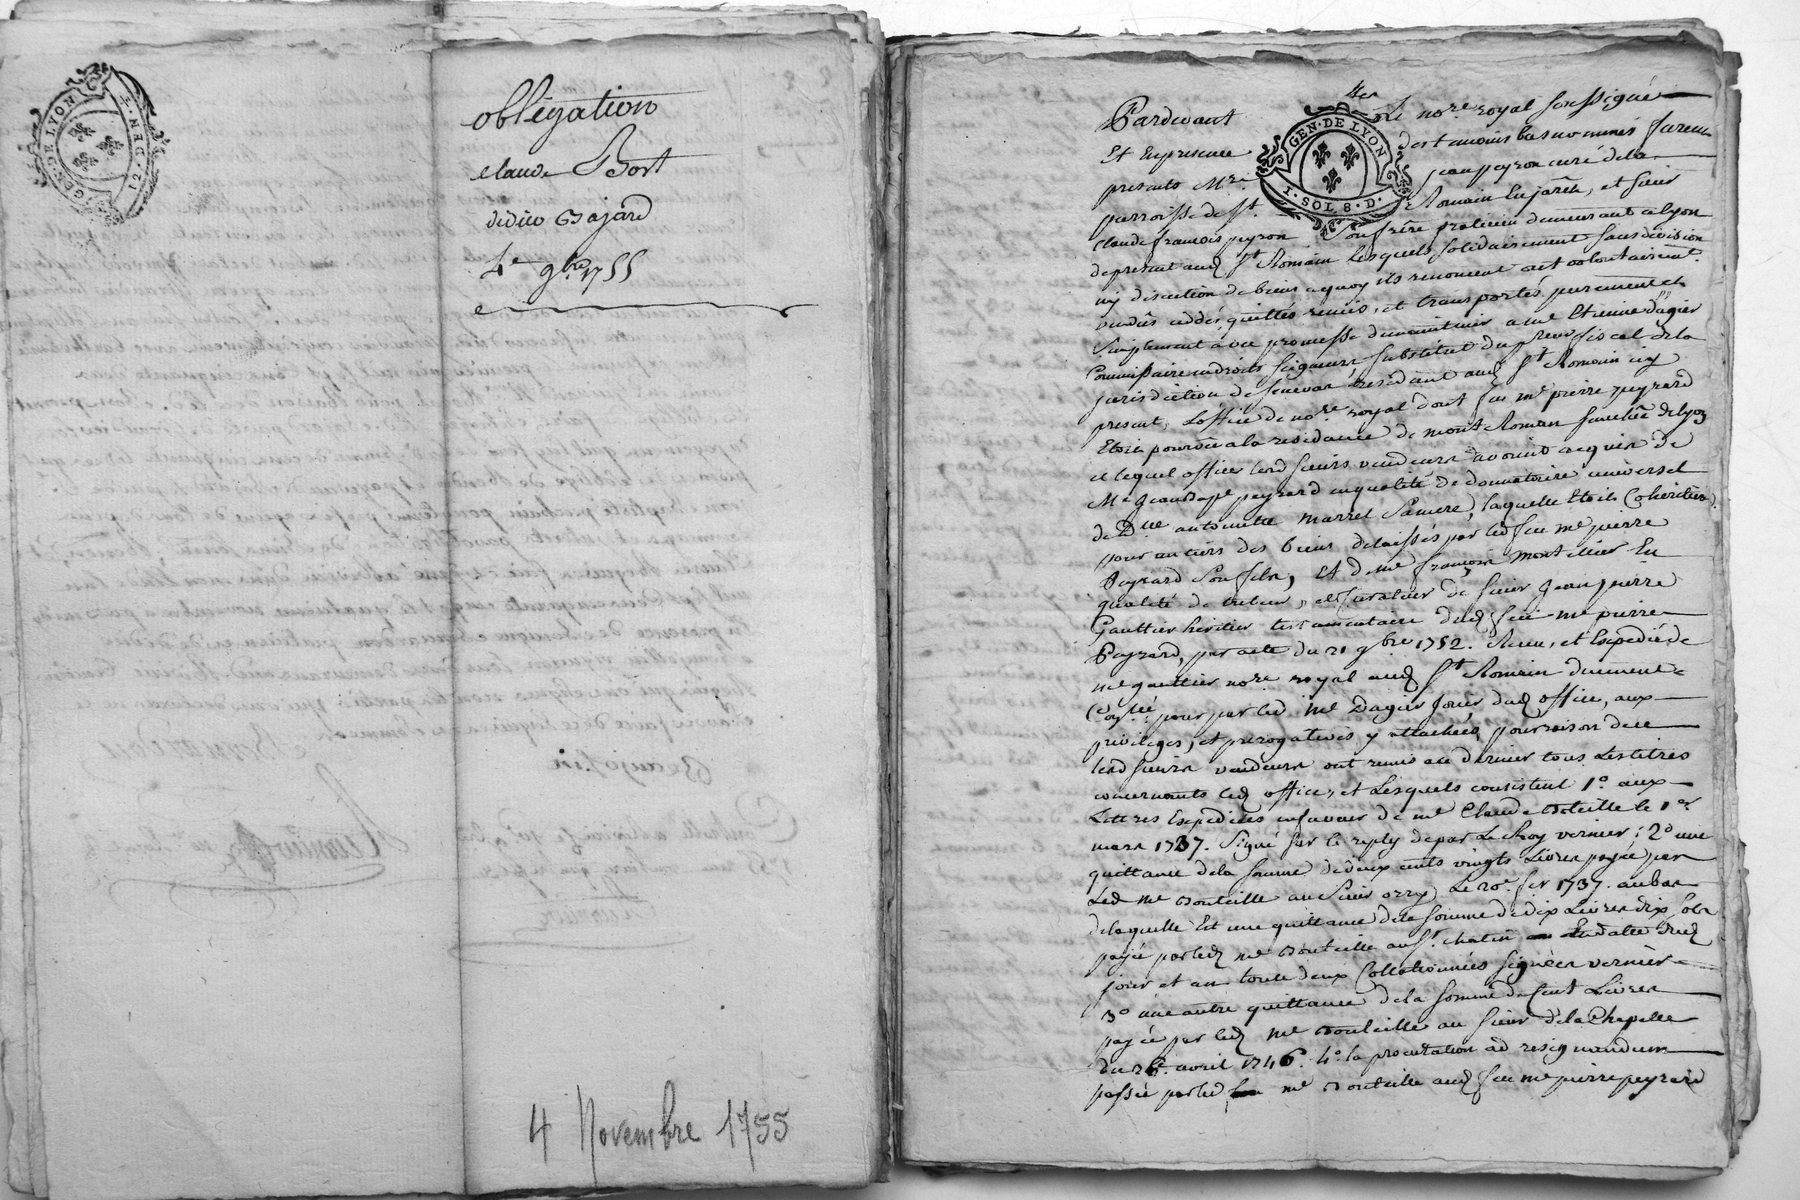 GEN·DE·LYON
obligation
claude Bort
didier Bajard
4e 9bre 1755
4 Novembre 1755
Pardevant Le nore royal soussigné
Et En presence des temoins bas nommés furent
presents Mre jean peyron curé de la
parroisse de St Romain En jarêts, et sieur
Claude françois peyron son frère praticien demeurant a lyon
de present audt St Romain lesquels solidairement sans division
ny discution de biens a quoy ils renoncent ont volontairemt
vendûs cedés, quittés remis, et transportés purement et
simplement avec promesse de maintenir a me Etienne Dagier
Commissaire en droits seigneurx, substitut du procur fiscal de la
jurisdiction de senevas residant audt St Romain icy
present, L'office de nore royal dont feu me pierre peyrard
Etoit pourvû a la residance de mont Romain senechée de lyon
et lequel office lesd sieurs vendeurs avoient acquis de
Me Jean Bapte peyrard en qualité de donnataire universel
de Dlle antoinette marrel sa mere, laquelle Etoit Coheritiere
pour un tiers des biens delaissés par led feu me pierre
Peyrard son fils, Et de me françois montellier En
qualité de tuteur, et curateur de sieur Jean pierre
Gaultier heritier testamentaire dudt feu me pierre
Peyrard, par acte du 21 9bre 1752. Recu, et Expedié de
me gaultier nore royal audt St Romain duement
Collé pour par led me Dagier Jouir dudt office, aux
privileges, et prerogatives y attachées, pour raison de ce
lesd sieurs vendeurs ont remis au dernier tous les titres
concernants ledt office, et Lesquels consistent 1o aux
Lettres Expediées en faveur de me Claude Bouteille le 1er
mars 1737. Signé sur le reply de par Le Roy vernier; 2o une
quittance de la somme de deux cents vingts Livres payée par
Led me Bouteille au sieur orry Le 20e fer 1737. au bas
de laquelle Est une quittance de la somme de dix Livres dix sols
payée par ledt me Bouteille au Sr chatin En datte dudt
jour et an toute deux Collationnées signées vernier
3o une autre quittance de la somme de Cent Livres
payée par ledt me Bouteille au sieur de la Chapelle
du 26 avril 1746. 4o la procuration ad resignandum
passée par led me Bouteille audt feu me pierre peyrard
GEN·DE LYON
1·SOL 8·D·